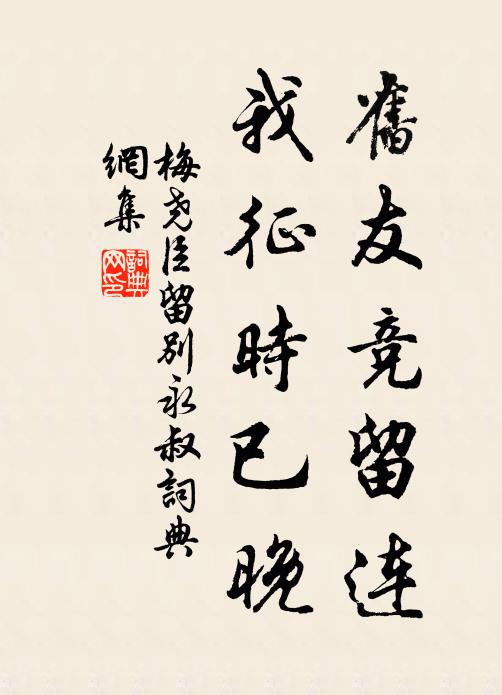 舊友竞留连
我征時已晚
梅尧臣留別永叔詞典
網集
詞典
网印